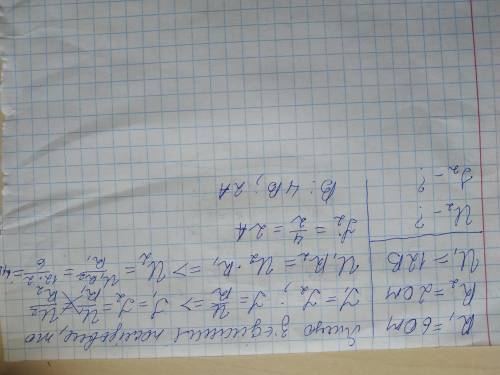 R₁ = 6 Ом
R₂ = 2 Ом
U₁ = 12 В
U₂ - ?
I₂ - ?
Якщо з'єднання послідовне, то
I₁ = I₂; I = U/R => I = I₂ = U₁/R₁ = U₂/R₂
U₁R₂ = U₂·R₁ => U₂ = U₁R₂/R₁ = 12·2/6 = 4
I₂ = 4/2 = 2A
В: 4В; 2A